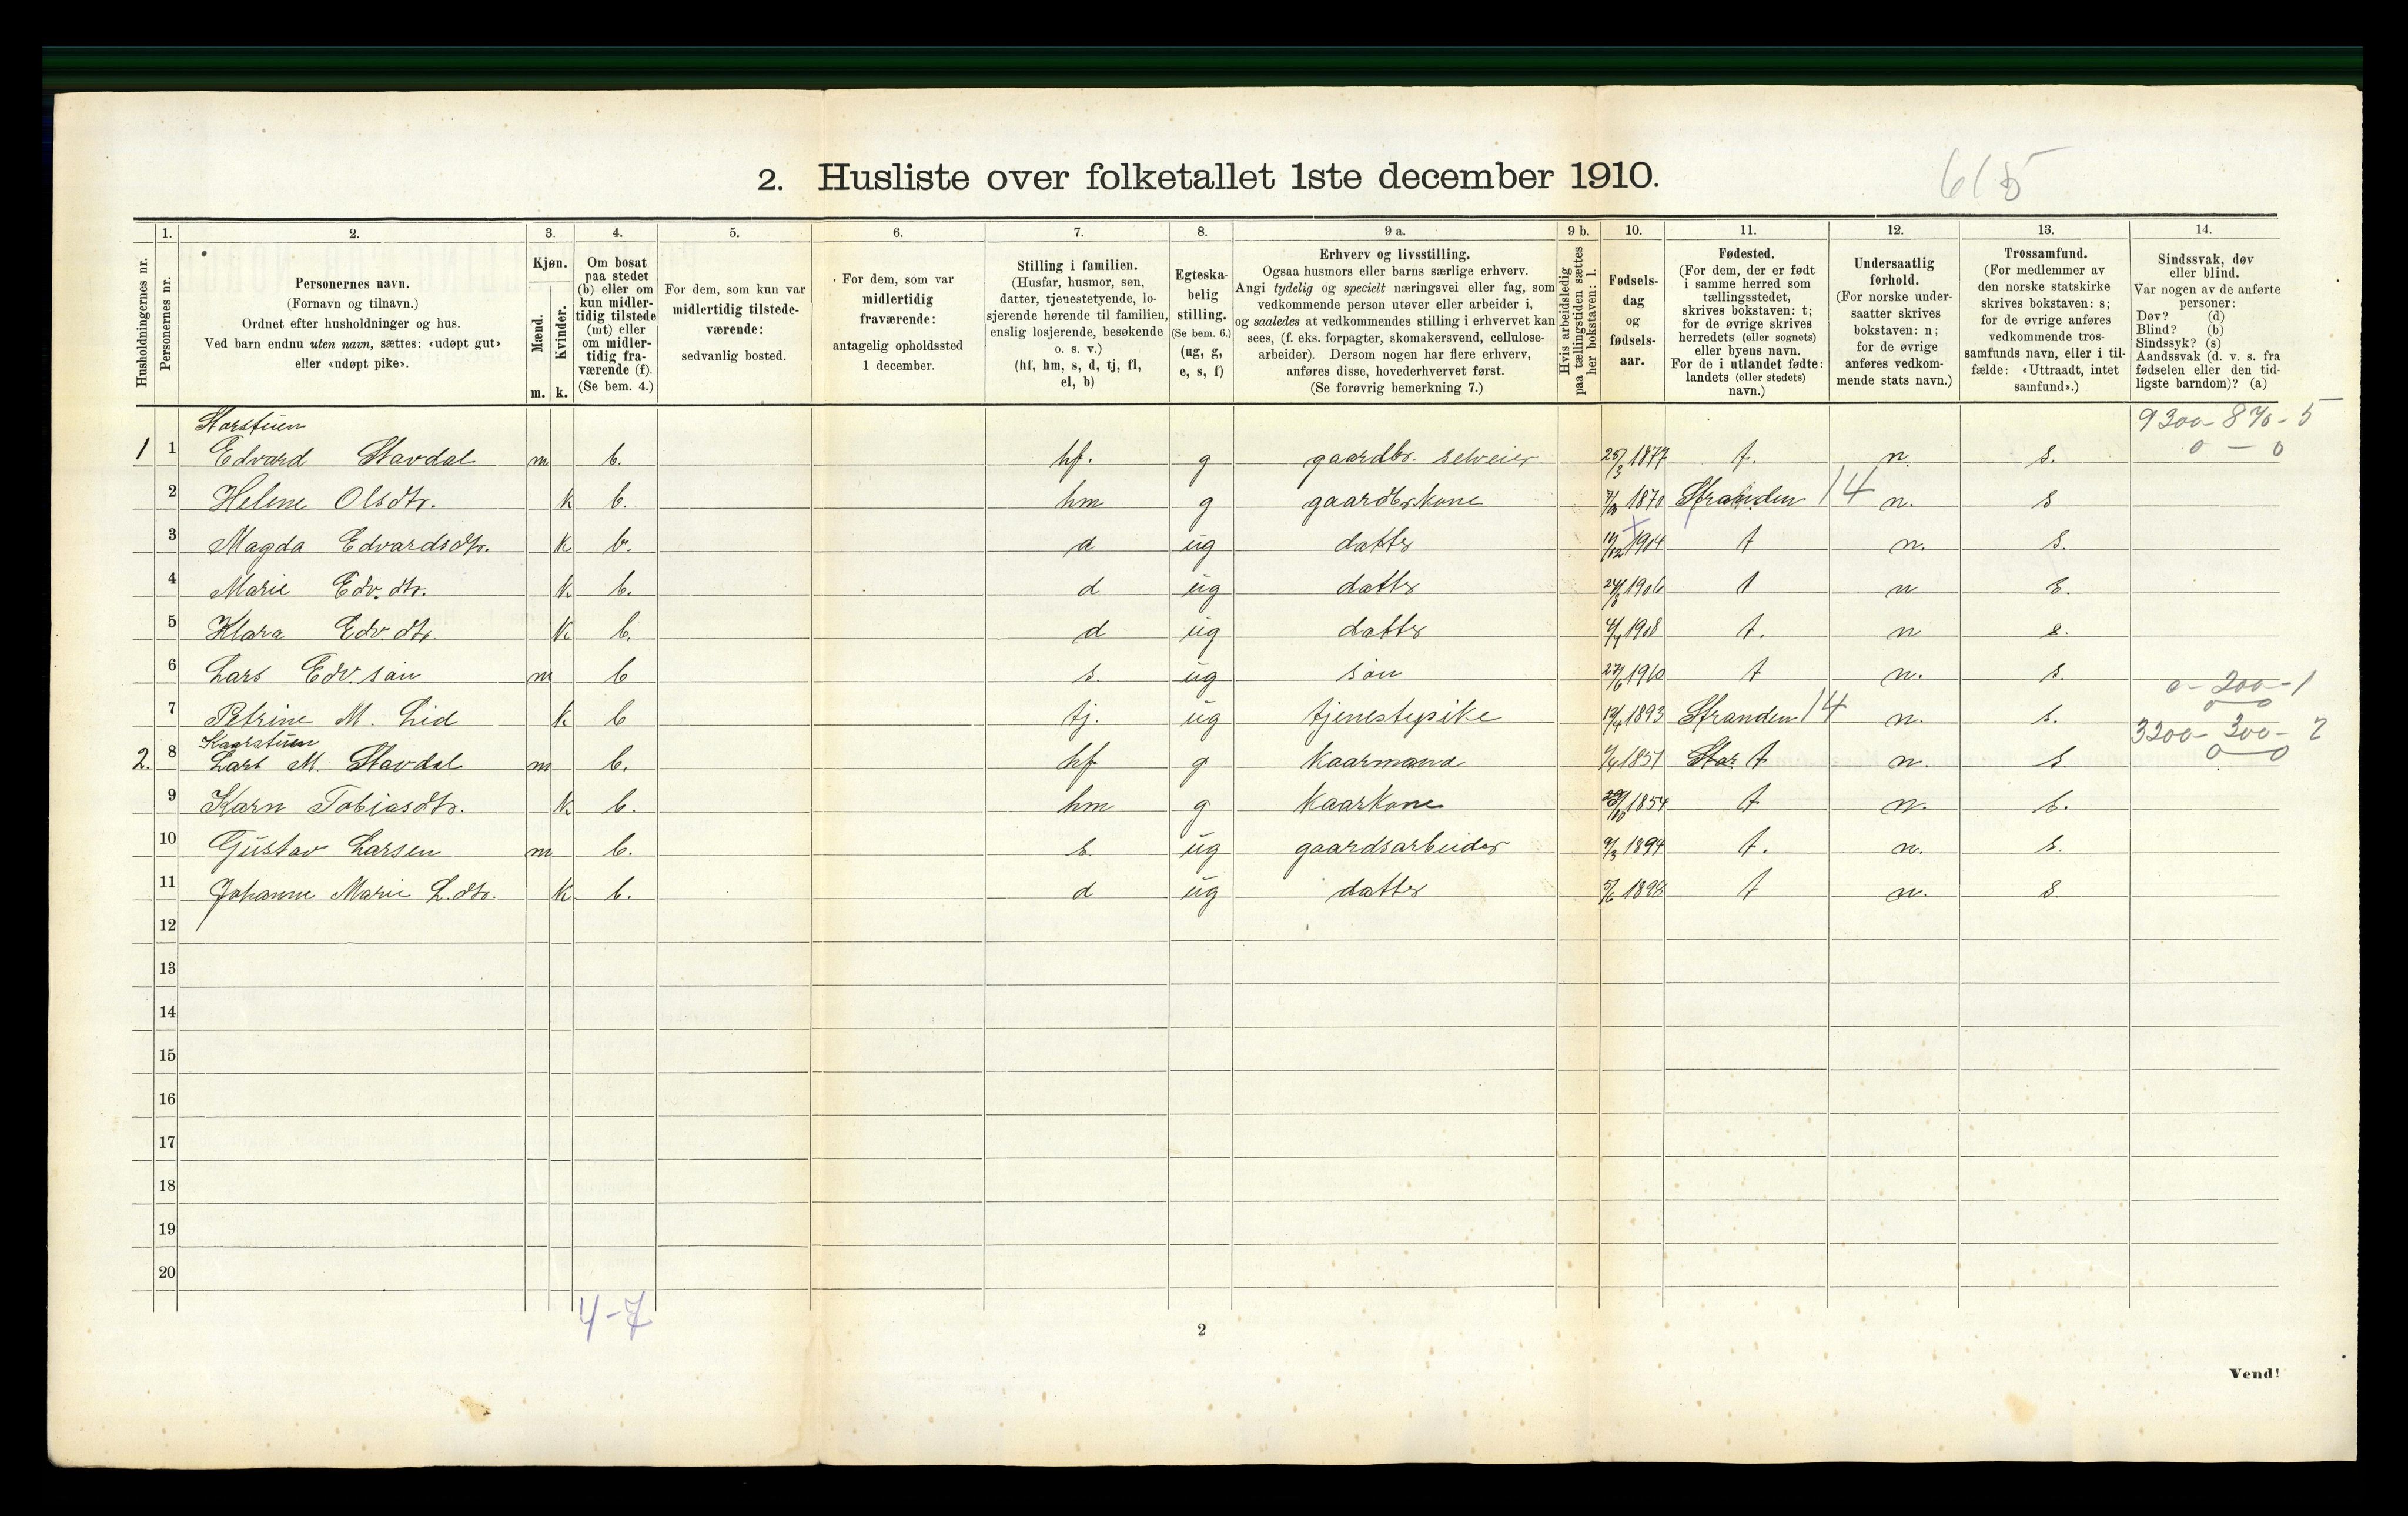 2. Husliste over folketallet 1ste december 1910.
615
1. 2. 3. 4. 5. 6. 7. 8. 9 a. 9 b. 10. 11. 12. 13. 14.
Husholdningernes nr.
Personernes nr.
Personernes navn.
(Fornavn og tilnavn.)
Ordnet efter husholdninger og hus.
Ved barn endnu uten navn, sættes: «udøpt gut»
eller «udøpt pike».
Kjøn.
Mænd.
Kvinder.
m. k.
Om bosat
paa stedet
(b) eller om
kun midler-
tidig tilstede
(mt) eller
om midler-
tidig fra-
værende (f).
(Se bem. 4.)
For dem, som kun var
midlertidig tilstede-
værende:
sedvanlig bosted.
For dem, som var
midlertidig
fraværende:
antagelig opholdssted
1 december.
Stilling i familien.
(Husfar, husmor, søn,
datter, tjenestetyende, lo-
sjerende hørende til familien,
enslig losjerende, besøkende
o. s. v.)
(hf, hm, s, d, tj, fl,
el, b)
Egteska-
belig
stilling.
(Se bem. 6.)
(ug, g,
e, s, f)
Erhverv og livsstilling.
Ogsaa husmors eller barns særlige erhverv.
Angi tydelig og specielt næringsvei eller fag, som
vedkommende person utøver eller arbeider i,
og saaledes at vedkommendes stilling i erhvervet kan
sees, (f. eks. forpagter, skomakersvend, cellulose-
arbeider). Dersom nogen har flere erhverv,
anføres disse, hovederhvervet først.
(Se forøvrig bemerkning 7.)
Hvis arbeidsledig
paa tællingstiden sættes
her bokstaven: l.
Fødsels-
dag
og
fødsels-
aar.
Fødested.
(For dem, der er født
i samme herred som
tællingsstedet,
skrives bokstaven: t;
for de øvrige skrives
herredets (eller sognets)
eller byens navn.
For de i utlandet fødte:
landets (eller stedets)
navn.)
Undersaatlig
forhold.
(For norske under-
saatter skrives
bokstaven: n;
for de øvrige
anføres vedkom-
mende stats navn.)
Trossamfund.
(For medlemmer av
den norske statskirke
skrives bokstaven: s;
for de øvrige anføres
vedkommende tros-
samfunds navn, eller i til-
fælde: «Uttraadt, intet
samfund».)
Sindssvak, døv
eller blind.
Var nogen av de anførte
personer:
Døv? (d)
Blind? (b)
Sindssyk? (s)
Aandssvak (d. v. s. fra
fødselen eller den tid-
ligste barndom)? (a)
Storstuen 9300-870-5
1 1 Edvard Stavdal m b. hf. g gaardbr. selveier 25/3 1877 t. n. s. 0 - 0
2 Helene Olsdtr. k b. hm g gaardbrkone 1870 Stranden 14 n. s
3 Magda Edvardsdtr. k b. d ug datter 1904 t n. s.
4 Marie Edv. dtr. k b. d ug datter 1906 t n s.
5 Klara Edv. dtr. k b. d ug datter 1908 t. n s.
6 Lars Edv. søn m b s. ug søn 27/6 1910 t n. s.
0-200-1
7 Petrine M. Lid k b tj. ug tjenestepike 1893 Stranden 14 n. s. 0 0
Kaarstuen 3200-300-2
2. 8 Lars M. Stavdal m b. hf g kaarmand 1851 t n. s. 0 0
9 Karn Tobiasdtr. k b. hm g kaarkone 1854 t n. s.
10 Gustav Larsen m b. s. ug gaardsarbeider 9/3 1894 t. n. s.
11 Johanne Marie L. dtr. k b. d ug datter 5/6 1898 t n. s.
12
13
14
15
16
17
18
19
20
4-7
2
Vend!